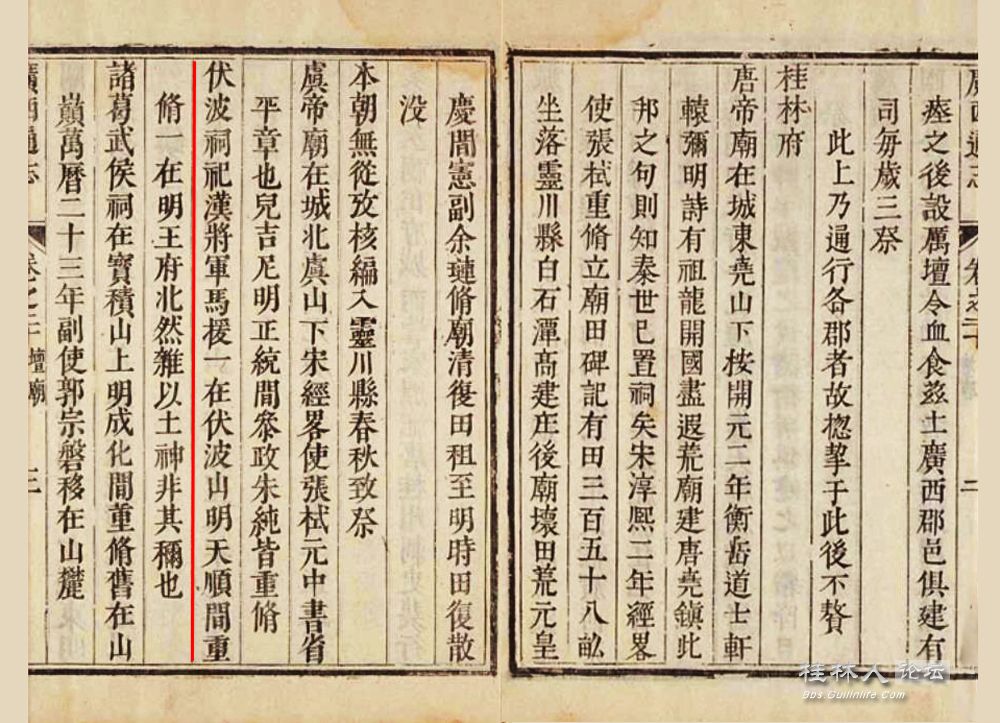 瘞之後設厲壇令血食茲土廣西郡邑俱建有
司每歲三祭
此上乃通行各郡者故揔挈于此後不贅
桂林府
唐帝廟在城東堯山下按開元二年衡岳道士軒
轅彌明詩有祖龍開國盡遐荒廟建唐堯鎮此
邦之句則知秦世已置祠矣宋淳熙二年經畧
使張栻重脩立廟田碑記有田三百五十八畝
坐落靈川縣白石潭高建庄後廟壞田荒元皇
慶間憲副余璉脩廟清復田租至明時田復散
沒
本朝無從攷核編入靈川縣春秋致祭
虞帝廟在城北虞山下宋經畧使張栻元中書省
平章也兒吉尼明正統間叅政朱純皆重脩
伏波祠祀漢將軍馬援一在伏波山明天順間重
脩一在明王府北然雜以土神非其禰也
諸葛武侯祠在寶積山上明成化間重脩舊在山
巔萬曆二十三年副使郭宗磐移在山麓
廣西通志 卷之二 壇廟 二
桂林人论坛
Bbs.Guilinlife.Com